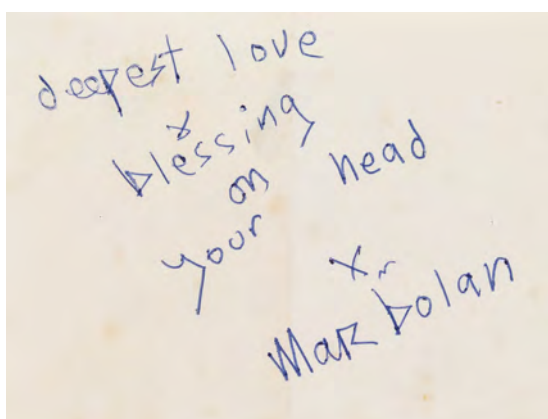 deepest love
x
blessing
on
your head
x
Marc bolan